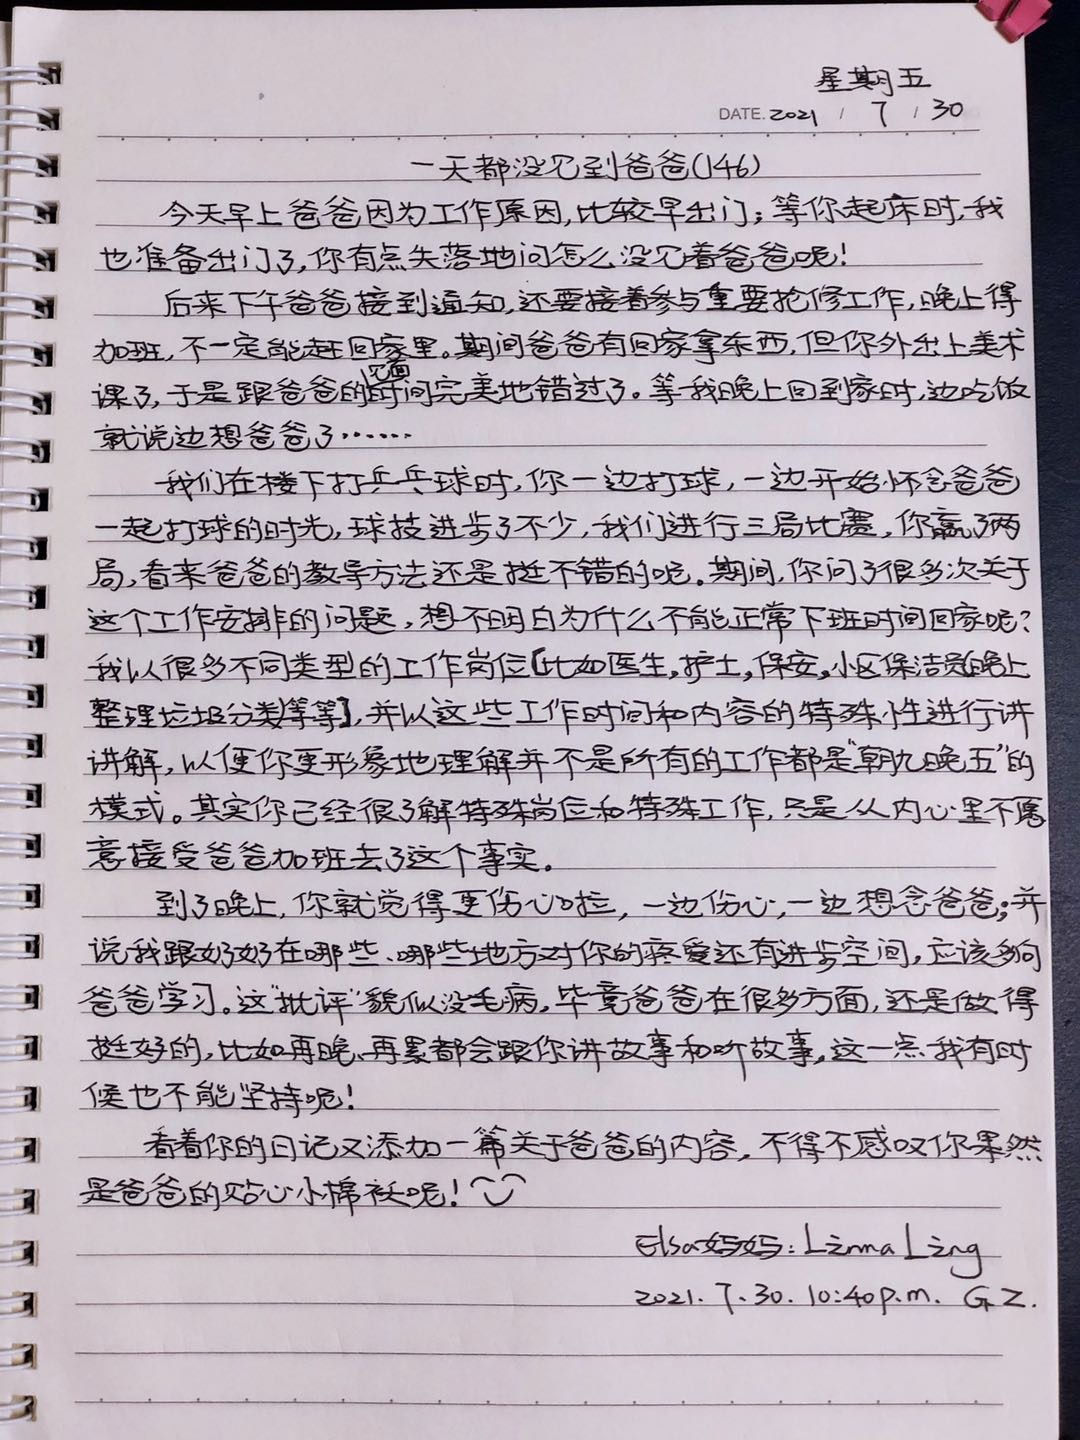 星期五
DATE. 2021 / 7 / 30
一天都没见到爸爸(146)
今天早上爸爸因为工作原因,比较早出门;等你起床时,我
也准备出门了,你有点失落地问怎么没见着爸爸呢!
后来下午爸爸接到通知,还要接着参与重要抢修工作,晚上得
加班,不一定能赶回家里。期间爸爸有回家拿东西,但你外出上美术
课了,于是跟爸爸的见面时间完美地错过了。等我晚上回到家时,边吃饭
就说边想爸爸了……
我们在楼下打乒乓球时,你一边打球,一边开始怀念爸爸
一起打球的时光,球技进步了不少,我们进行三局比赛,你赢了两
局,看来爸爸的教导方法还是挺不错的呢。期间,你问了很多次关于
这个工作安排的问题,想不明白为什么不能正常下班时间回家呢?
我以很多不同类型的工作岗位[比如医生,护士,保安,小区保洁员晚上
整理垃圾分类等等],并以这些工作时间和内容的特殊性进行讲
讲解,以便你更形象地理解并不是所有的工作都是"朝九晚五"的
模式。其实你已经很了解特殊岗位和特殊工作,只是从内心里不愿
意接受爸爸加班去了这个事实。
到了晚上,你就觉得更伤心啦,一边伤心,一边想念爸爸;并
说我跟奶奶在哪些、哪些地方对你的疼爱还有进步空间,应该多向
爸爸学习。这"批评"貌似没毛病,毕竟爸爸在很多方面,还是做得
挺好的,比如再晚、再累都会跟你讲故事和听故事,这一点我有时
候也不能坚持呢!
看着你的日记又添加一篇关于爸爸的内容,不得不感叹你果然
是爸爸的贴心小棉袄呢!
Elsa妈妈:Linna Ling
2021.7.30.10:40p.m. GZ.